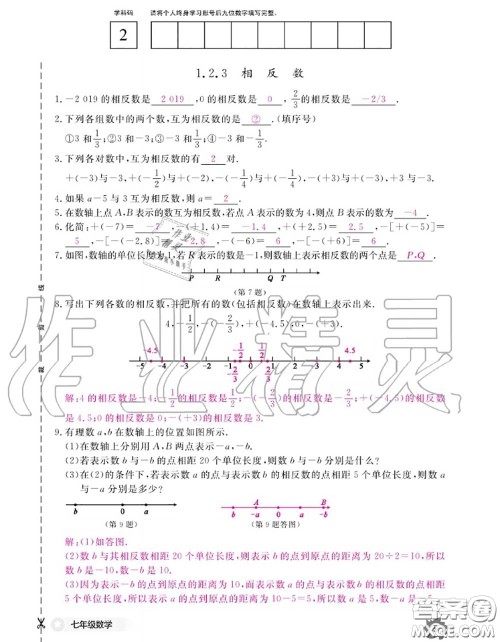 学科码 请将个人终身学习形号后九位数字填写完整。
2
1.2.3 相反数
1.-2 019的相反数是 2 019 ,0的相反数是 0 ,2/3的相反数是 -2/3 .
2.下列各组数中的两个数,互为相反数的是 ② .(填序号)
①3和1/3;②3和-3;③-3和1/3;④-3和-1/3.
3.下列各对数中,互为相反数的有 2 对.
+(-3)与-3,+(-1/2)与+(-2),-(-1/4)与+(-1/4),-(+3)与+(-3),+3与-3.
4.如果a-5与3互为相反数,则a= 2 .
5.在数轴上点A,B表示的数互为相反数,若点A表示的数为4,则点B表示的数为 -4 .
6.化简:+(-7)= -7 ,-(+1.4)= -1.4 ,+(+2.5)= 2.5 ,-[+(-5)]=
5 ,-[-(-2.8)]= -2.8 ,-(-6)= 6 ,-(+6)= -6 .
7.如图,数轴的单位长度为1,若R表示的数是-1,则数轴上表示相反数的两个点是 P,Q .
P R Q T
(第7题)
8.写出下列各数的相反数,并把所有的数(包括相反数)在数轴上表示出来.
4,-1/2,-(-2/3),+(-4.5),0,-(+3).
-4.5 -1/2 1/2 4.5
-5 -4 -3 -2 -1 0 1 2 3 4 5
-2/3 2/3
解:4的相反数是-4;-1/2的相反数是1/2;-(-2/3)的相反数是-2/3;+(-4.5)的相反数
是4.5;0的相反数是0;-(+3)的相反数是3.
9.有理数a,b在数轴上的位置如图所示.
(1)在数轴上分别用A,B两点表示-a,-b.
(2)若表示数b与-b的点相距20个单位长度,则数b与-b分别是什么?
(3)在(2)的条件下,若表示数a的点与表示数b的相反数的点相距5个单位长度,则数a
与-a分别是多少?
b 0 a
(第9题)
A B
b 0 a
(第9题答图)
解:(1)如答图.
(2)数b与其相反数相距20个单位长度,则表示b的点到原点的距离为20÷2=10,所以
数b是-10,数-b是10.
(3)因为表示-b的点到原点的距离为10,而表示数a的点与表示数b的相反数的点相
距5个单位长度,所以表示a的点到原点的距离为10-5=5,所以数a是5,数-a是-5.
七年级数学
作业精灵
答案圈
MXQE.COM